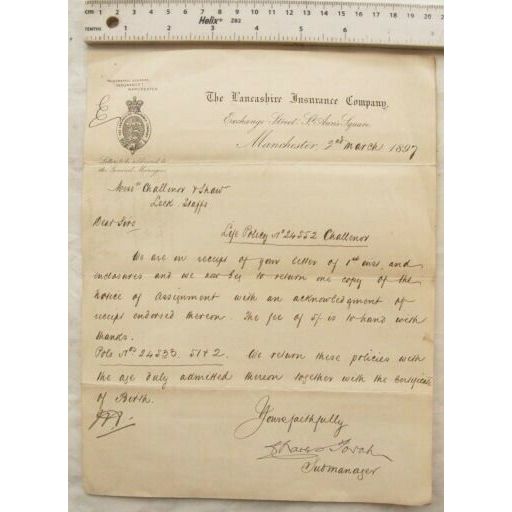 CMS 1 2 3 4 5 6 7 8 9 10 11 12 13 14 15 16 17 18 19 20 21 22 23 24 25 26
Helix 282
TENTHS 1 2 3 4 5 6
TELEGRAPHIC ADDRESS,
MANCHESTER
The Lancashire Insurance Company,
Exchange Street, St. Ann's Square
Manchester, 2nd March 1897
Letters to be addressed to
the General Manager
Messrs Challinor & Shaw
Leek Staffs
Dear Sirs
Life Policy No 24552 Challinor
We are in receipt of your letter of 1st inst. and
enclosures and we now beg to return one copy of the
notice of assignment with an acknowledgment of
receipt endorsed thereon. The fee of 5/- is to hand with
thanks.
Pols Nos 51 & 2. We return these policies with
the age duly admitted thereon together with the Certificate
of Birth.
Yours faithfully
Submanager